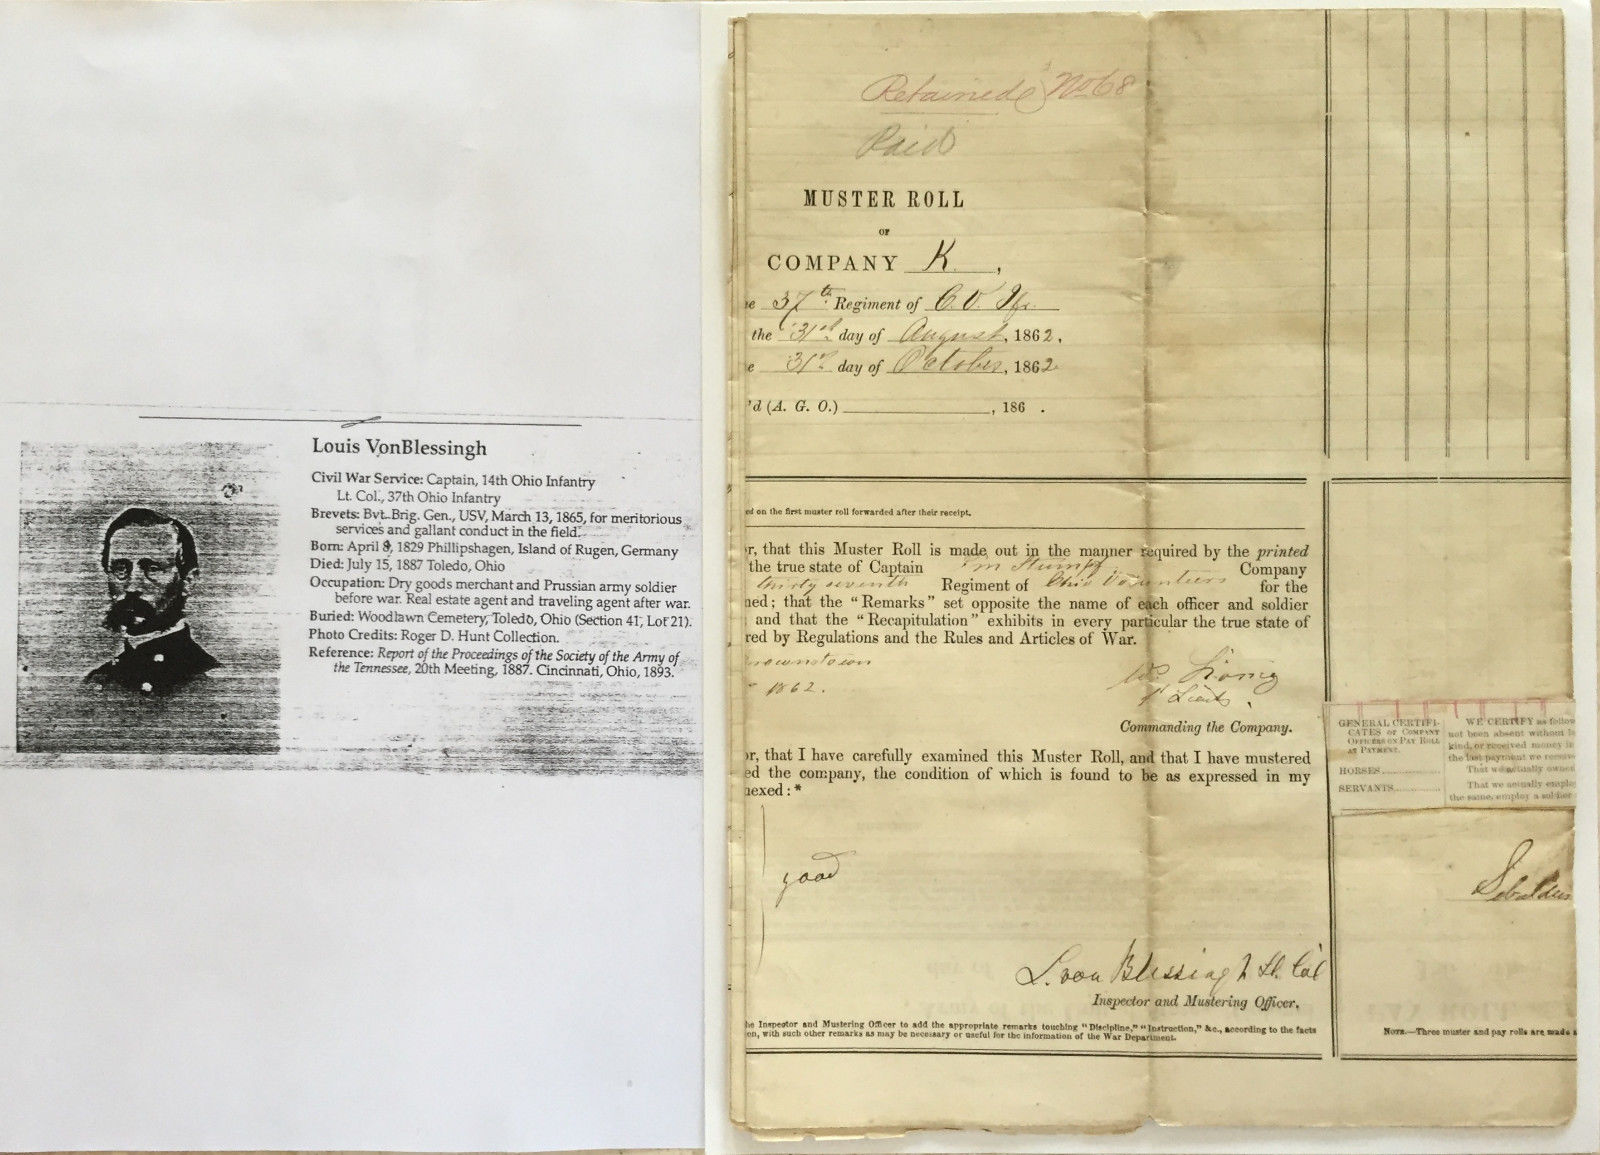 Louis VonBlessingh
Civil War Service: Captain, 14th Ohio Infantry
Lt. Col., 37th Ohio Infantry
Brevets: Bvt. Brig. Gen., USV, March 13, 1865, for meritorious
services and gallant conduct in the field.
Born: April 8, 1829 Phillipshagen, Island of Rugen, Germany
Died: July 15, 1887 Toledo, Ohio
Occupation: Dry goods merchant and Prussian army soldier
before war. Real estate agent and traveling agent after war.
Buried: Woodlawn Cemetery, Toledo, Ohio (Section 41, Lot 21).
Photo Credits: Roger D. Hunt Collection.
Reference: Report of the Proceedings of the Society of the Army of
the Tennessee, 20th Meeting, 1887. Cincinnati, Ohio, 1893.
Retained No 68
Paid
MUSTER ROLL
OF
COMPANY K,
e 37th Regiment of O.V. Inf.
the 31st day of August, 1862,
e 31st day of October, 1862
'd (A. G. O.) , 186 .
ed on the first muster roll forwarded after their receipt.
r, that this Muster Roll is made out in the manner required by the printed
the true state of Captain Stumpf Company
thirty seventh Regiment of Ohio Volunteers for the
ned; that the "Remarks" set opposite the name of each officer and soldier
; and that the "Recapitulation" exhibits in every particular the true state of
red by Regulations and the Rules and Articles of War.
rownstown
1862.
König
1st Lieut.
Commanding the Company.
r, that I have carefully examined this Muster Roll, and that I have mustered
ed the company, the condition of which is found to be as expressed in my
nexed: *
good
L. von Blessingh Lt. Col
Inspector and Mustering Officer.
he Inspector and Mustering Officer to add the appropriate remarks touching "Discipline," "Instruction," &c., according to the facts
en, with such other remarks as may be necessary or useful for the information of the War Department.
GENERAL CERTIFI-
CATES OF COMPANY
OFFICERS ON PAY ROLL
AT PAYMENT.
HORSES
SERVANTS
WE CERTIFY as follow
not been absent without l
kind, or received money in
the last payment we receive
That we actually owned
That we actually employ
the same, employ a soldier
NOTE.—Three muster and pay rolls are made